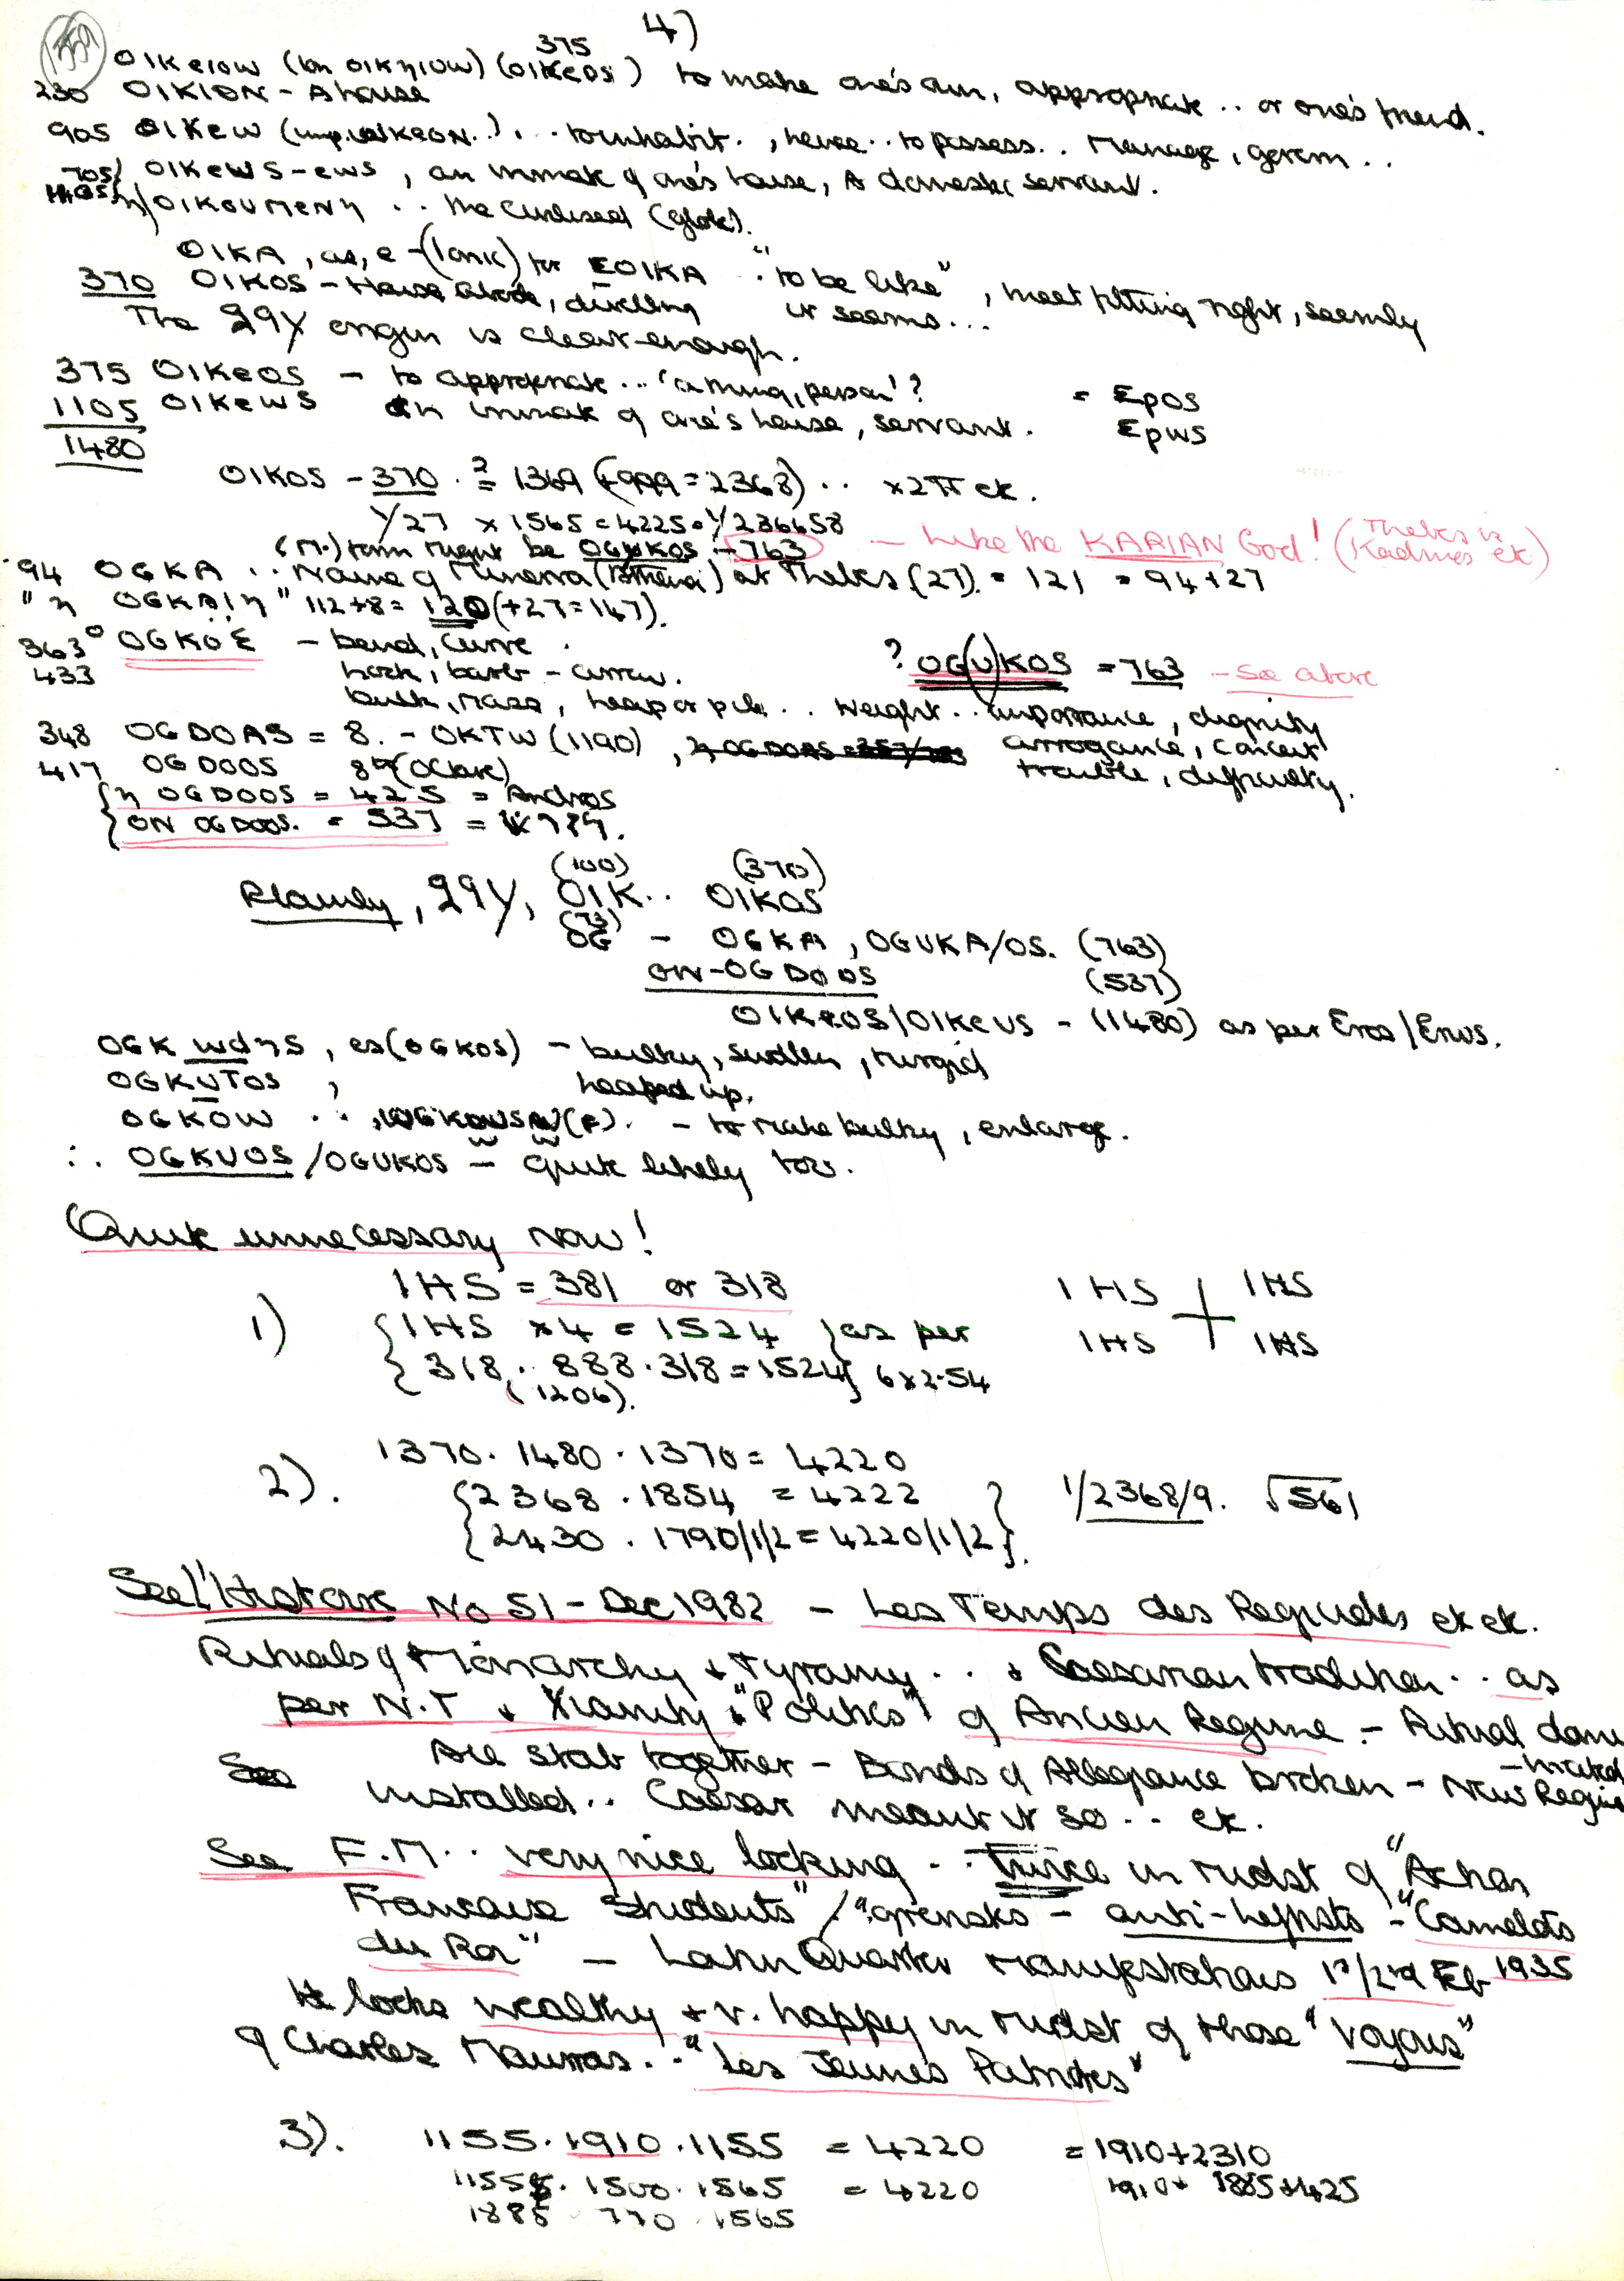 1359
4)
375
OIKeiow (Ion OIKηIOW) (OIKeos) to make one's own, appropriate .. or one's friend.
230 OIKION - A house
905 OIKew (imp. KEON..) . .. to inhabit . , hence .. to possess .. Manage, govern ..
705 OIKewS-ews, an inmate of one's house, A domestic servant.
η OIKOUMENη .. the Civilised (globe).
OIKA, as, e - (Ionic) for EOIKA "to be like", meet fitting right, seemly
370 OIKOS - House abode, dwelling it seems...
The 29Y origin is clear enough.
375 OIKeOS - to appropriate ... 'a thing, person'? = EpOS
1105 OIKewS An inmate of one's house, servant. EpwS
1480
OIKOS - 370 . ?= 1369 (+999 = 2368) .. x2π etc.
1/27 x 1565 = 4225 . 1/236658
(M.) form might be OGUKOS - 763 - Like the KARIAN God! (Thebes is Kadmos etc)
94 OGKA .. Name of Minerva (Athena) at Thebes (27). = 121 = 94+27
" η OGKAIη " 112+8 = 120 (+27=147).
363 OGKOS - bend, curve
433 hook, barb - arrow. ? OG(U)KOS = 763 - see above
bulk, mass, heap or pile .. Weight .. importance, dignity
348 OGDOAS = 8. - OKTW (1190), arrogance, conceit
417 OGDOOS 8th (Octave) trouble, difficulty.
{η OGDOOS = 425 = Andros
{ON OGDOOS. = 537 =
(100) (370)
Plainly, 29Y, OIK.. OIKOS
(73)
OG - OGKA, OGUKA/OS. (763)
ON-OGDOOS (537)
OIKeOS/OIKeUS - (1480) as per Eros/Erws.
OGKwdηS, es (OGKOS) - bulky, swollen, turgid
OGKUTOS , heaped up.
OGKOW .. , (F). - to make bulky, enlarge.
∴ OGKUOS/OGUKOS - Quite likely too.
Quite unnecessary now!
IHS = 381 or 318 IHS | IHS
1) {IHS x4 = 1524 } as per IHS | IHS
{318 . 888 . 318 = 1524} 6x2.54
(1206).
1370 . 1480 . 1370 = 4220
2). {2368 . 1854 = 4222 } 1/2368/9. √561
{2430 . 1790/1/2 = 4220/1/2}.
See L'Histoire No 51 - Dec 1982 - Les Temps des Regicides etc etc.
Rituals of Monarchy + Tyranny .. + Caesarian tradition .. as
per N.T + Xianity + "Politics" of Ancien Regime - Ritual dance
All stab together - Bonds of Allegiance broken - New Regime
installed .. Caesar meant it so .. etc.
See F.M .. very nice looking .. Twice in midst of "Action
Francaise Students" / - anti-leftists - "Camelots
du Roi" - Latin Quarter manifestations 1st/2nd Feb 1935
He looks wealthy + v. happy in midst of those "voyous"
of Charles Maurras .. "Les Jeunes Patriotes"
3). 1155 . 1910 . 1155 = 4220 = 1910+2310
1155 . 1500 . 1565 = 4220 1910+ 1885+425
1885 770 1565